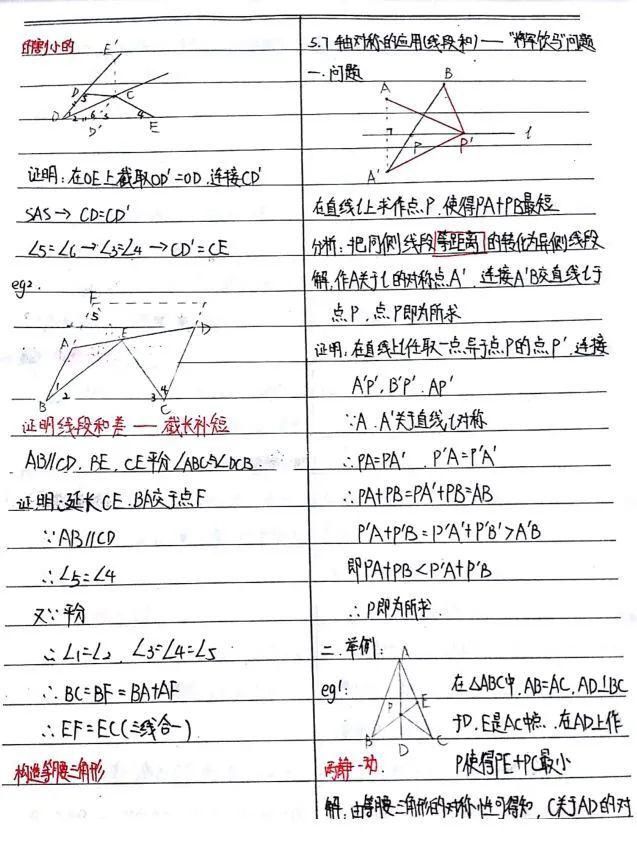 截小的
E'
D 5 C
O 1 2 6 3 4
D' E
证明:在OE上截取OD'=OD.连接CD'
SAS→ CD=CD'
∠5=∠6→∠3=∠4→CD'=CE
eg2.
F
5
A E D
B 1 2 3 4 C
证明线段和差 — 截长补短
AB∥CD、BE、CE平分∠ABC与∠DCB.
证明:延长CE、BA交于点F
∵AB∥CD
∴∠5=∠4
又∵平分
∴∠1=∠2、∠3=∠4=∠5
∴BC=BF=BA+AF
∴EF=EC(三线合一)
构造等腰三角形
5.7轴对称的应用(线段和)——"将军饮马"问题
一.问题
B
A
P P' l
A'
在直线l上求作点P,使得PA+PB最短
分析:把同侧线段等距离的转化为异侧线段
解:作A关于l的对称点A'、连接A'B交直线l于
点P、点P即为所求
证明:在直线l上任取一点异于点P的点P'、连接
A'P'、B'P'、AP'
∵A、A'关于直线l对称
∴PA=PA' P'A=P'A'
∴PA+PB=PA'+PB=AB
P'A+P'B=P'A'+P'B'>A'B
即PA+PB<P'A+P'B
∴P即为所求.
二.举例:
A
eg1:
P E
B D C
在△ABC中,AB=AC,AD⊥BC
于D.E是AC中点、在AD上作
两静一动. P使得PE+PC最小
解:由等腰三角形的对称性可得知,C关于AD的对